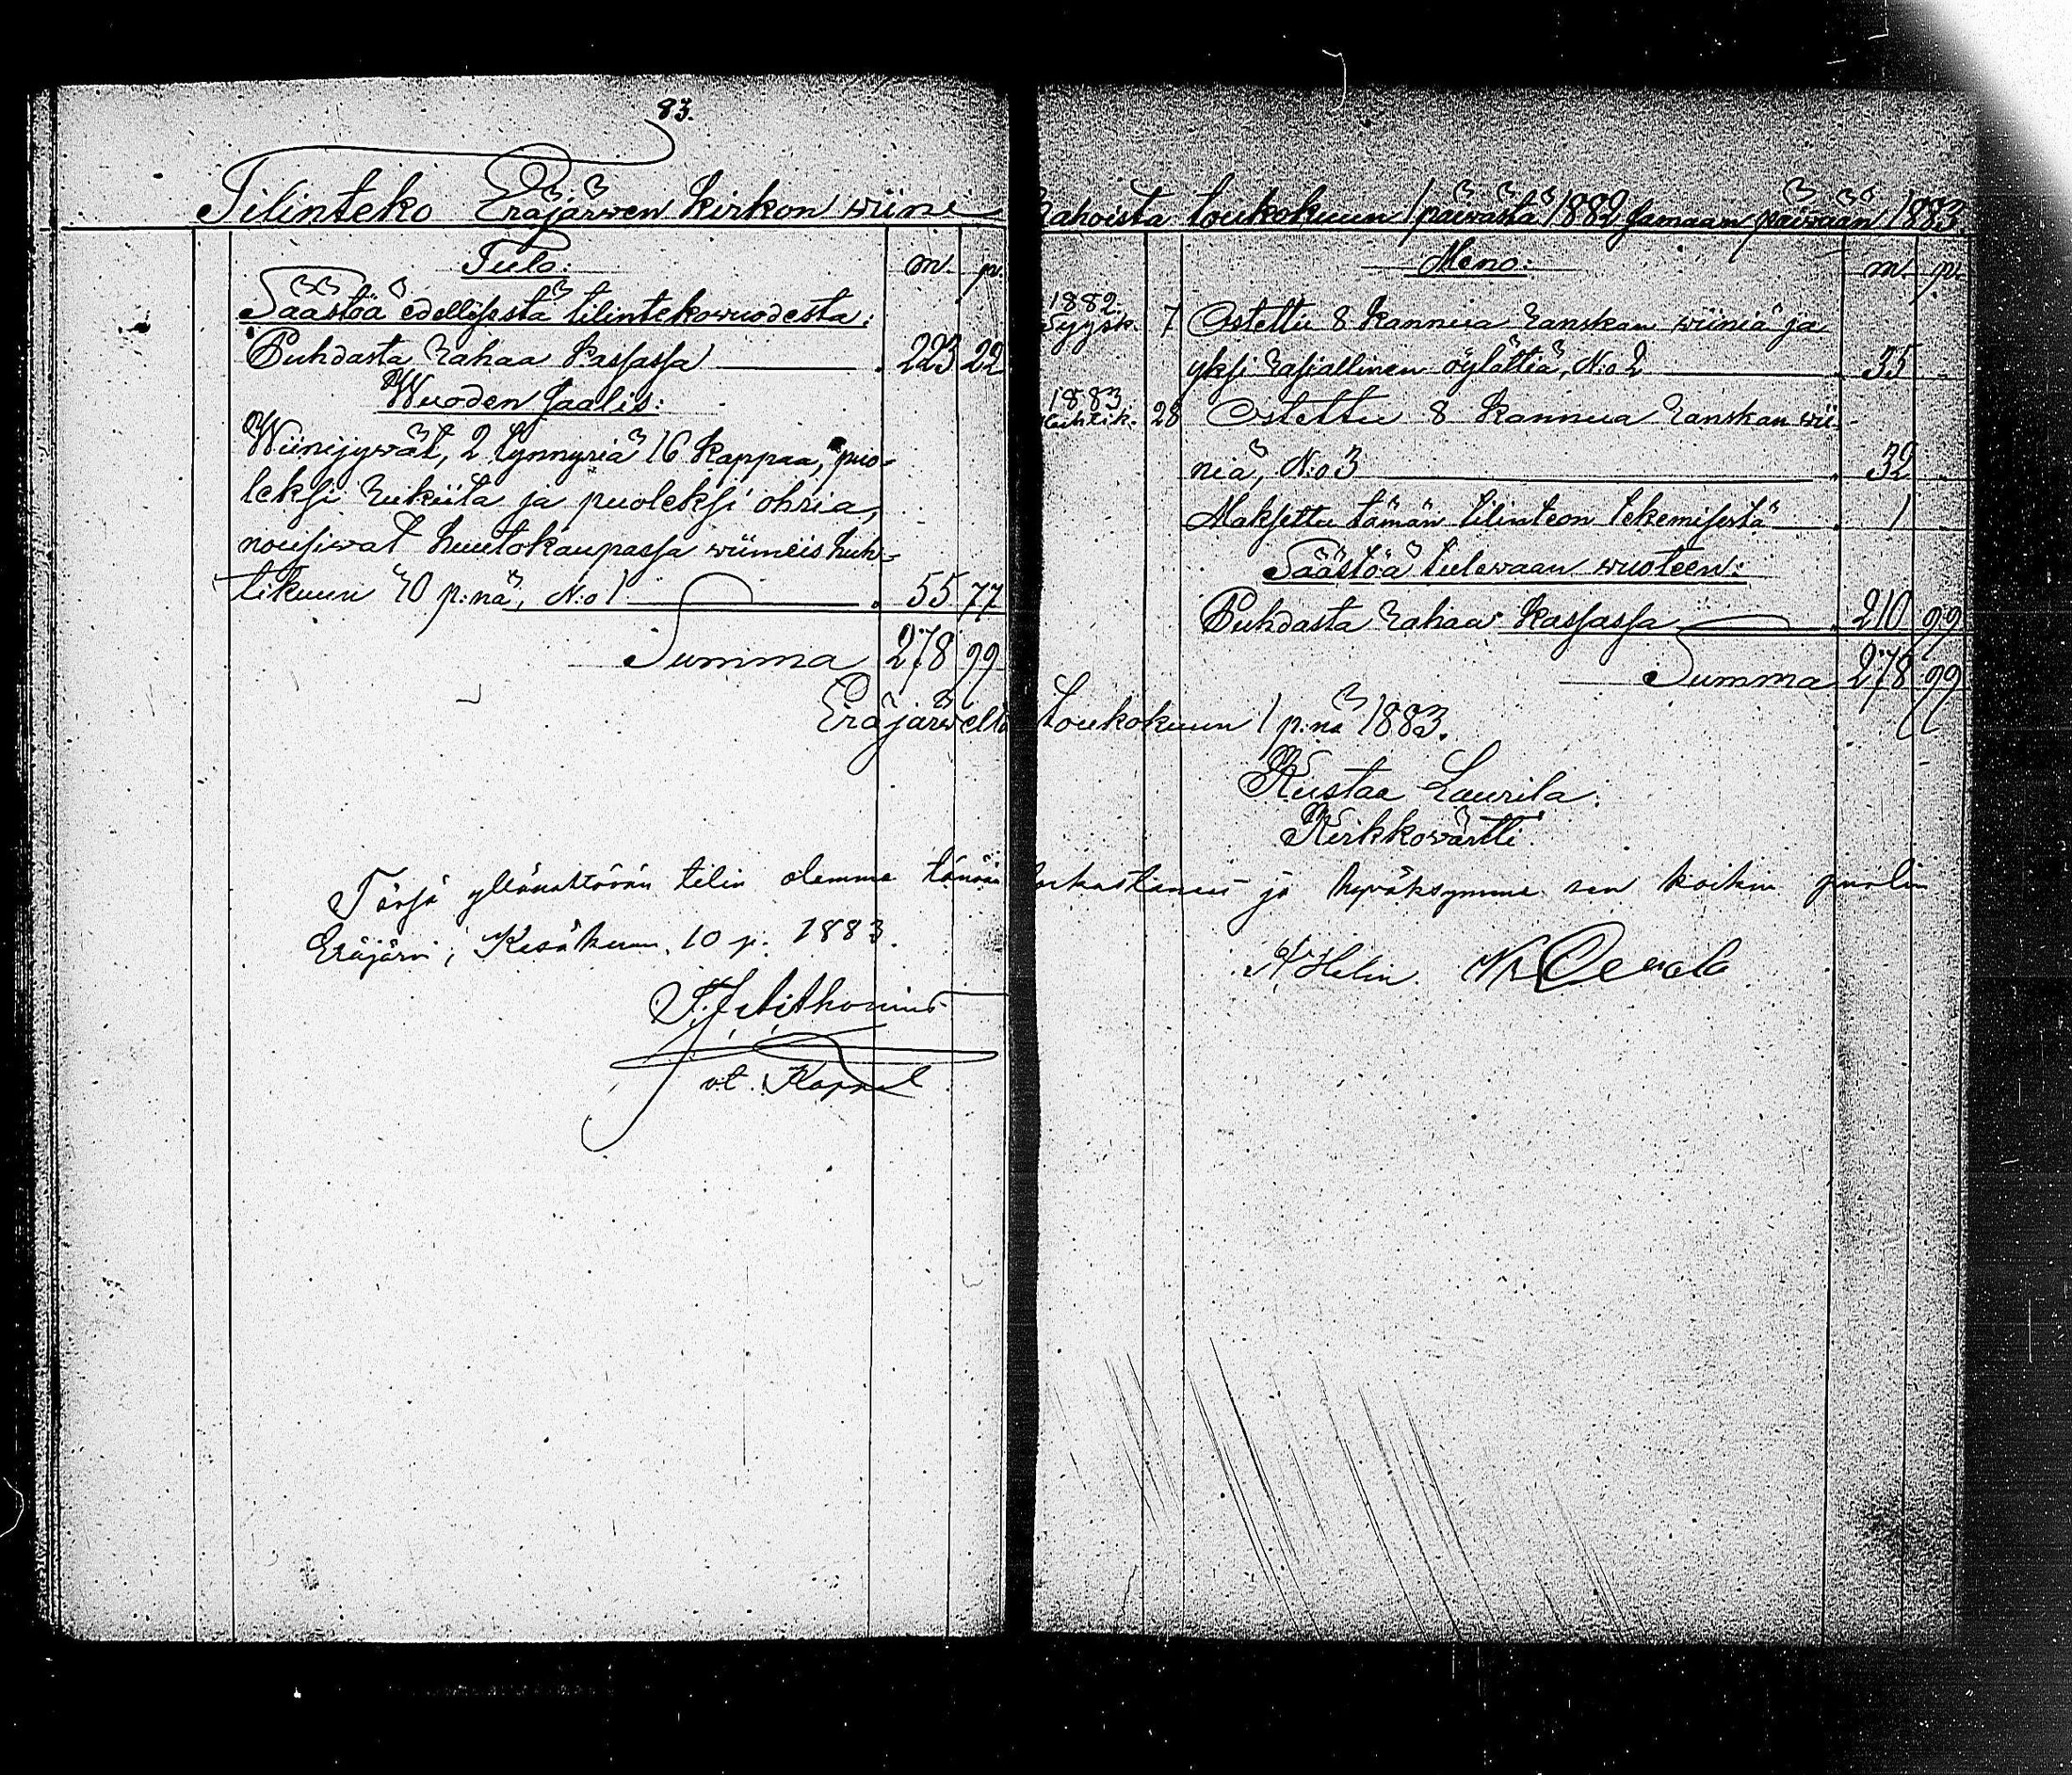 83.
Tilinteko Eräjärwen kirkon wiini
Tulo: m. p.
Säästöä edellisestä tilintekowuodesta:
Puhdasta rahaa kassassa 223 22
Wuoden saalis:
Wiinijywät, 2 tynnyriä 16 kappaa, puo-
leksi rukiita ja puoleksi ohria,
nousiwat huutokaupassa wiimeis huh-
tikuun 30 p:nä, N:o 1 55 77
Summa 278 99
Eräjärwellä
Tässä ylläolevan tilin olemme tänään
Eräjärvi, Kesäkuun 10 p. 1883.
v.t. Kappal
rahoista toukokuun 1 päiwästä 1882 samaan päiwään 1883.
Meno: m. p.
1882.
Syysk. 7 Ostettu 8 kannua ranskan wiiniä ja
yksi rasiallinen öylättiä, N:o 2 35
1883
Huhtik. 28 Ostettu 8 kannua ranskan wii-
niä, N:o 3 32
Maksettu tämän tilinteon tekemisestä 1
Säästöä tulewaan wuoteen:
Puhdasta rahaa kassassa 210 99
Summa 278 99
toukokuun 1 p:nä 1883.
Kustaa Laurila.
Kirkkowärtti.
tarkastaneet ja hyväksymme sen kaikin puolin
Helin